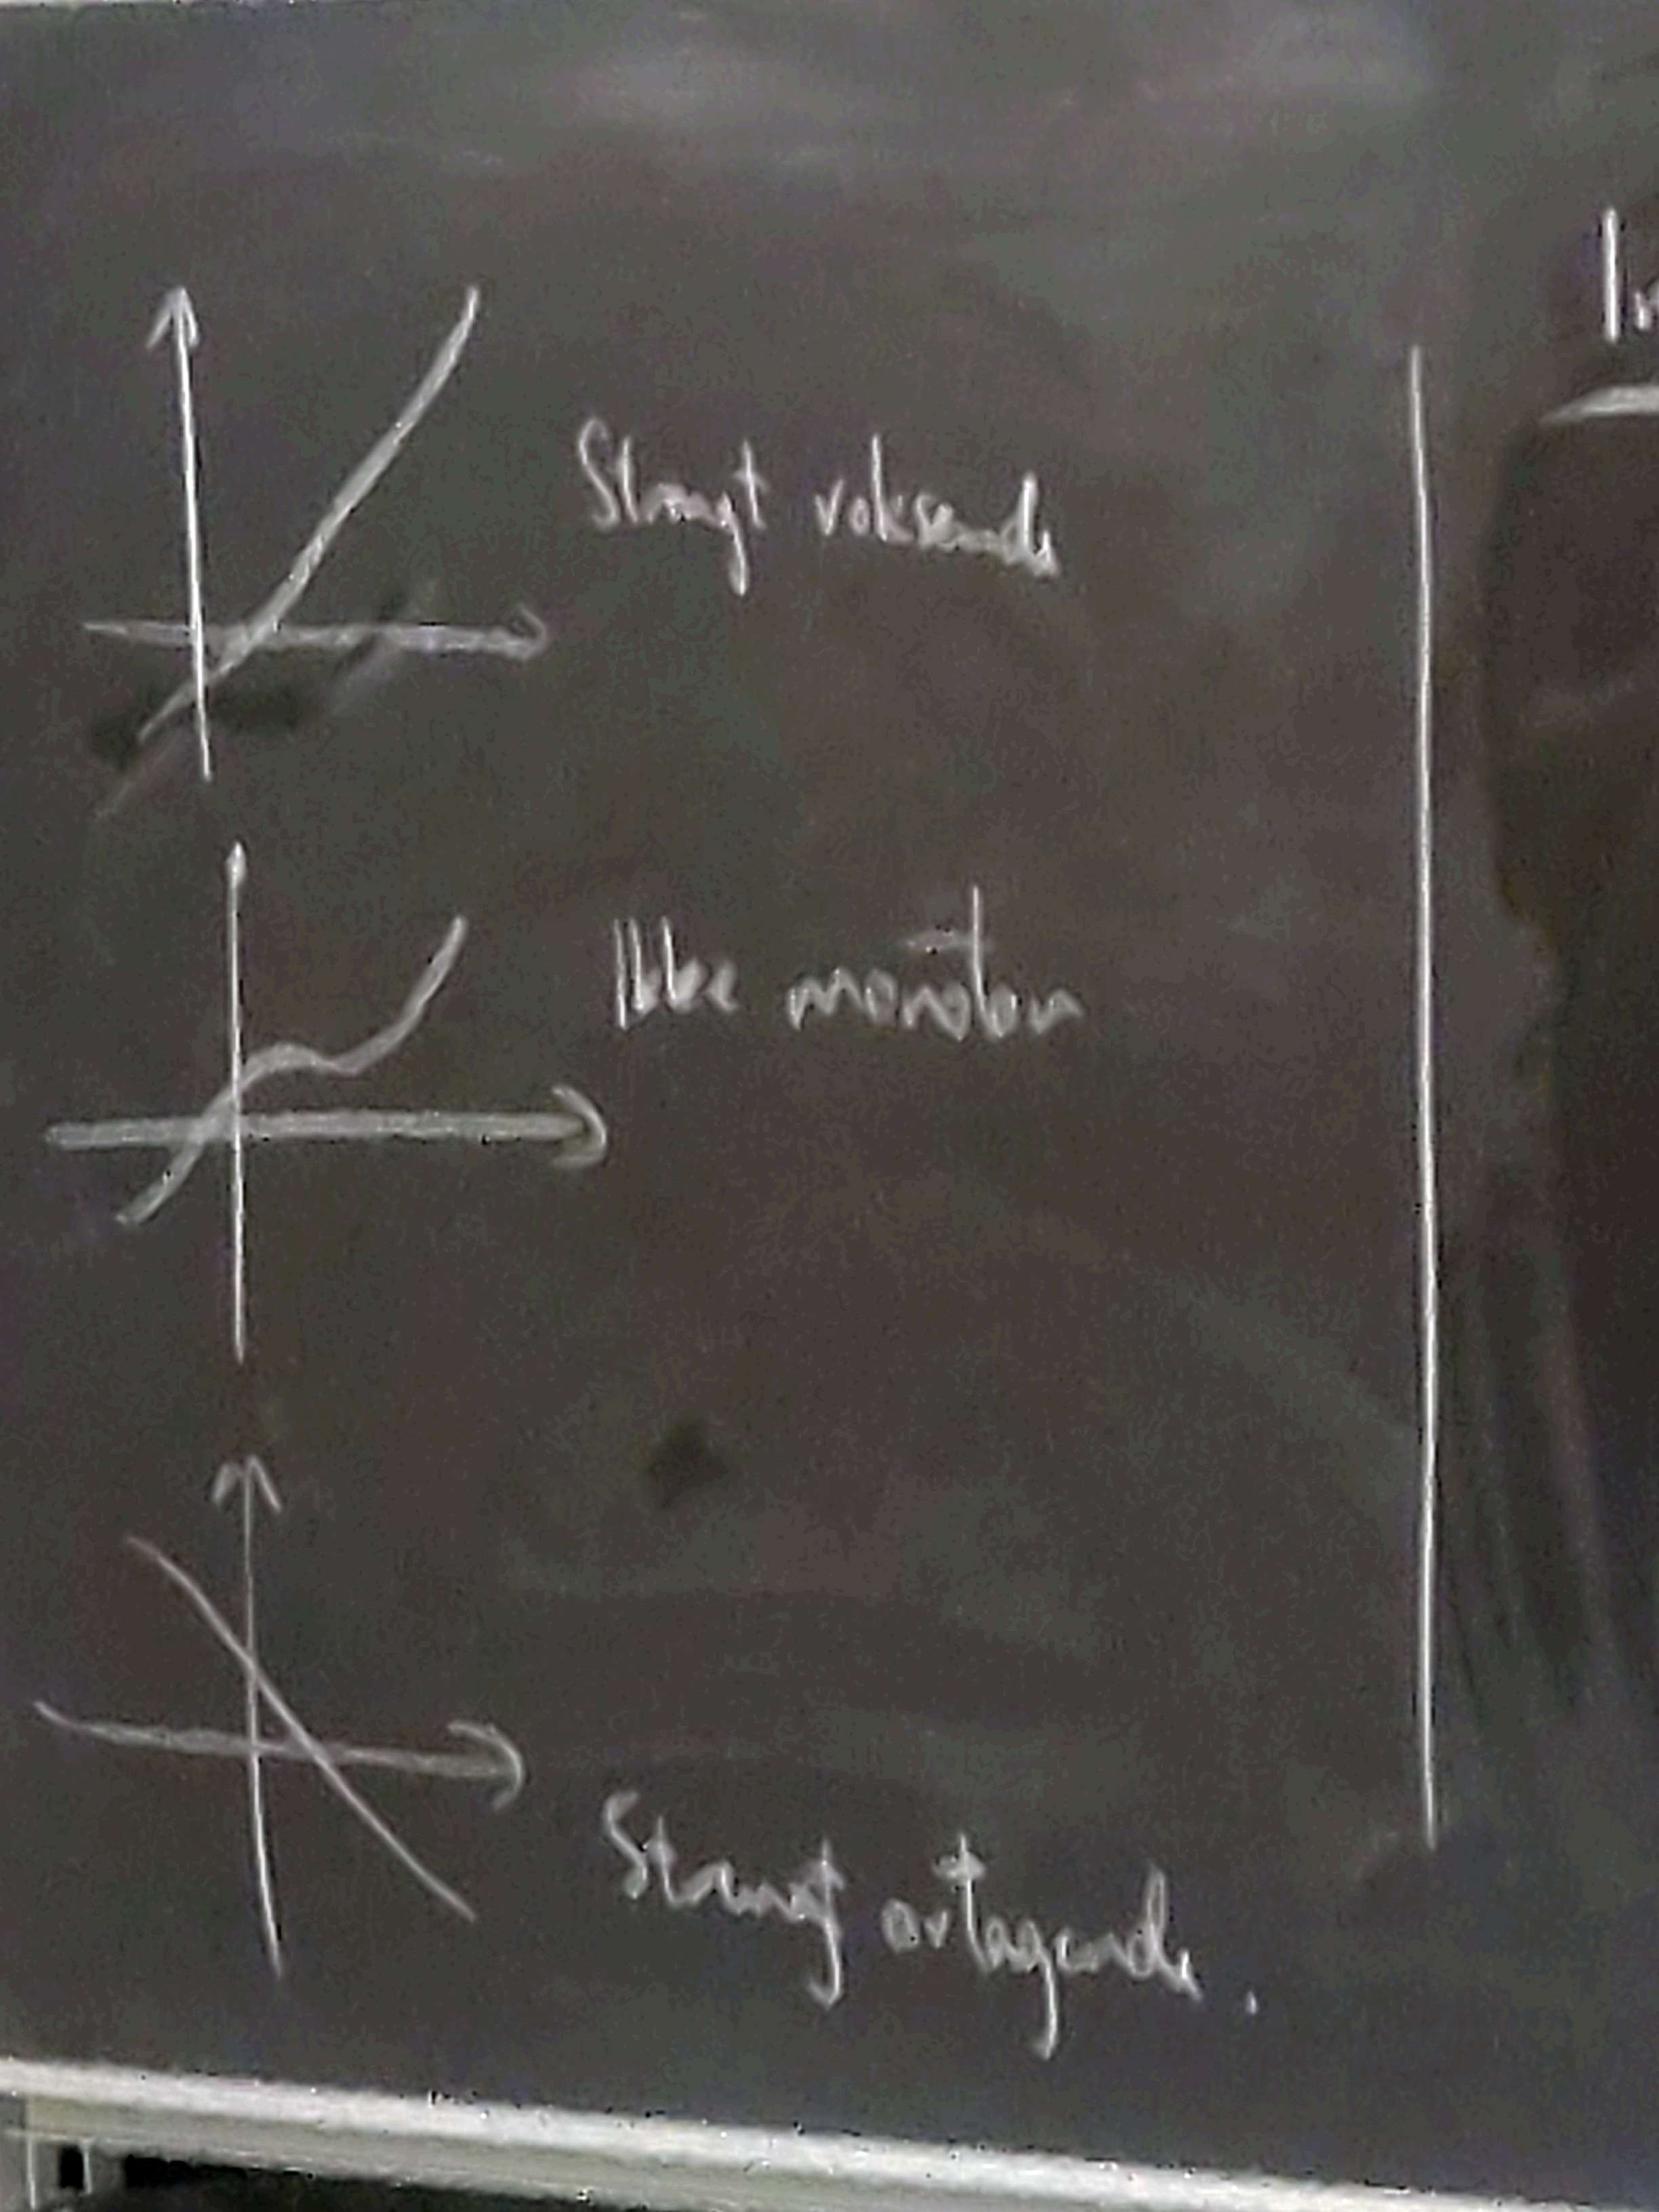 Strengt voksende
Ikke monoton
Strengt avtagende.